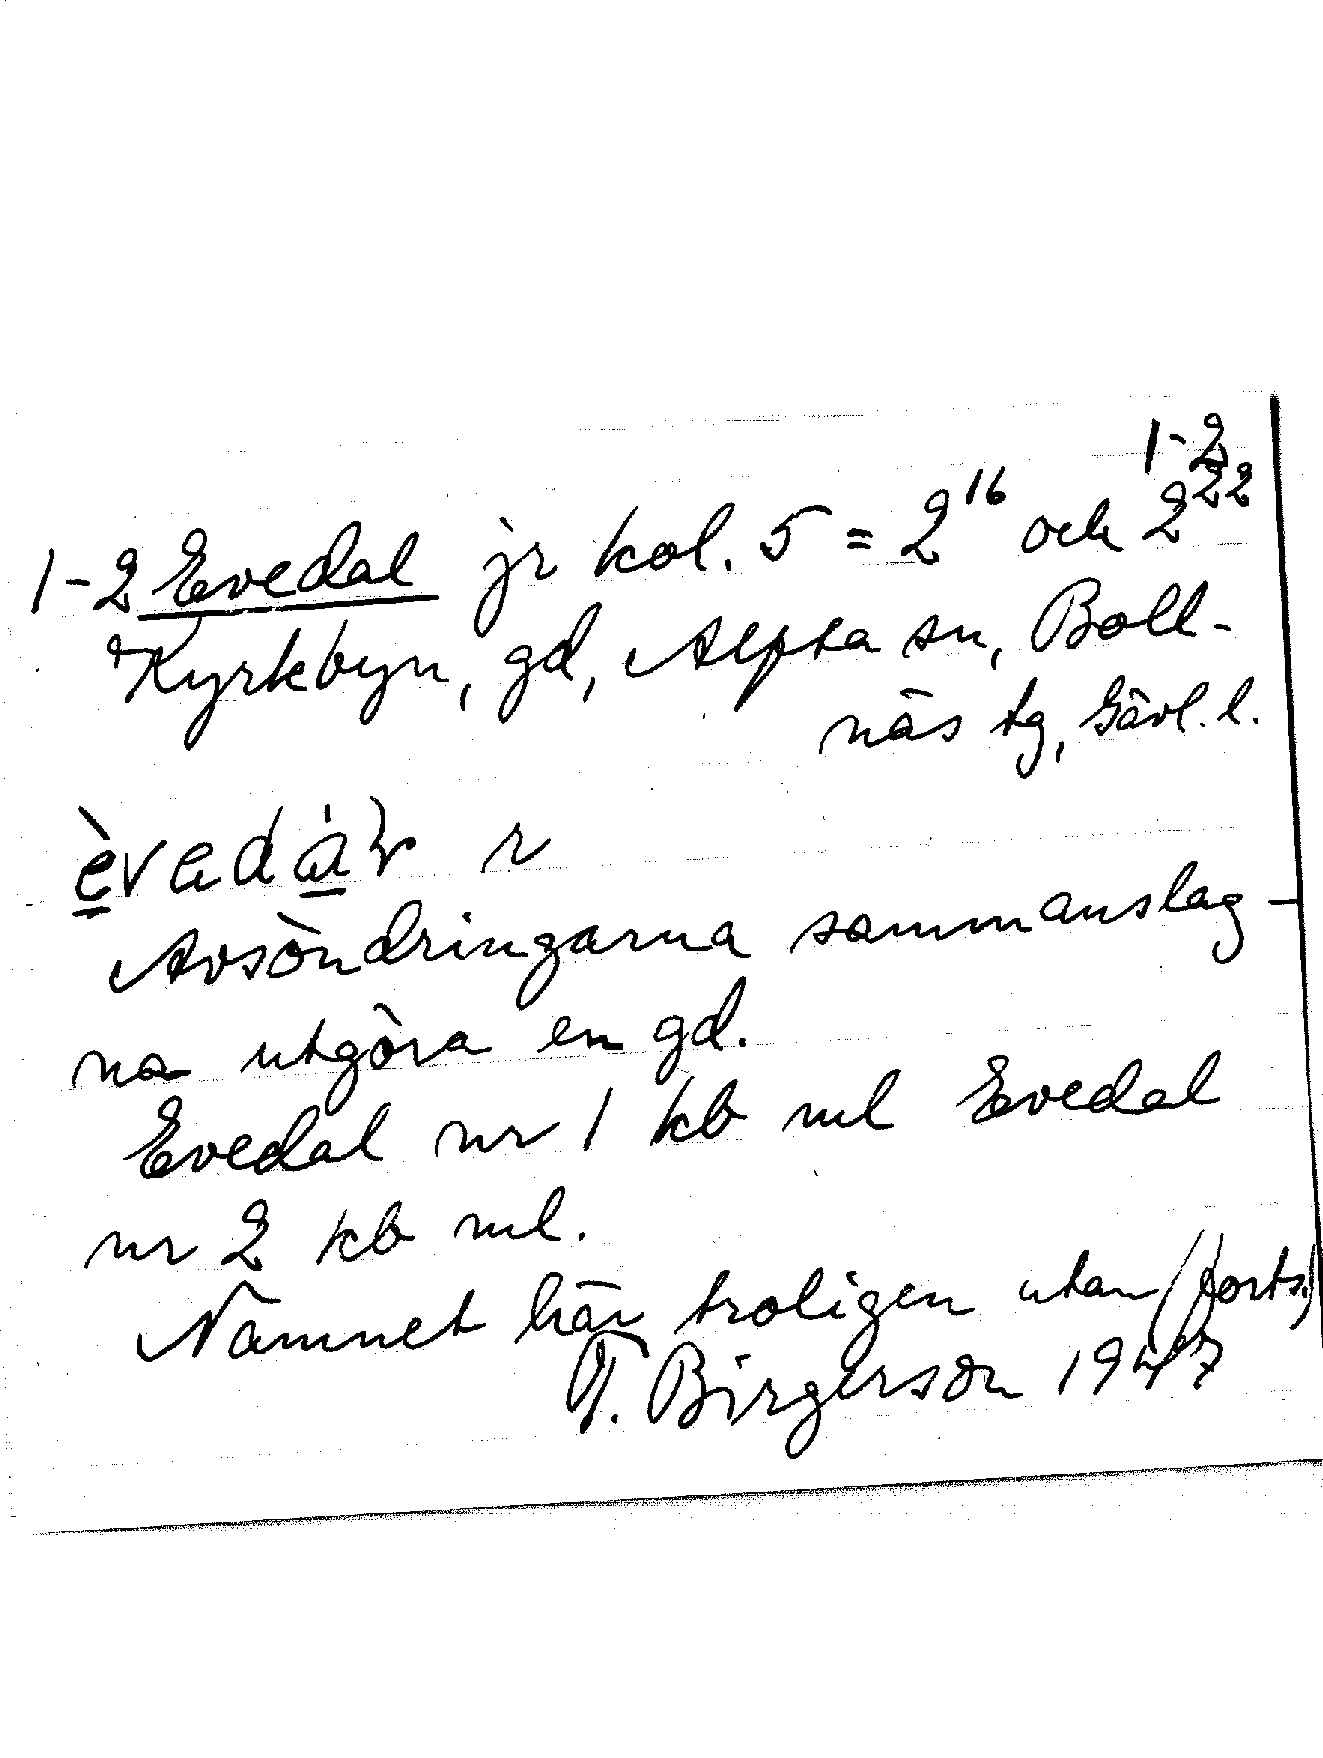 1-2
1-2 Evedal jr kol. 5 = 2¹⁶ och 2²²
Kyrkbyn, gd, Alfta sn, Boll-
näs tg, Gävl. l.
r
Avsöndringarna sammanslag-
na utgöra en gd.
Evedal nr 1 kb ml Evedal
nr 2 kb ml.
Namnet här troligen utan (forts.)
T. Birgerson 1947